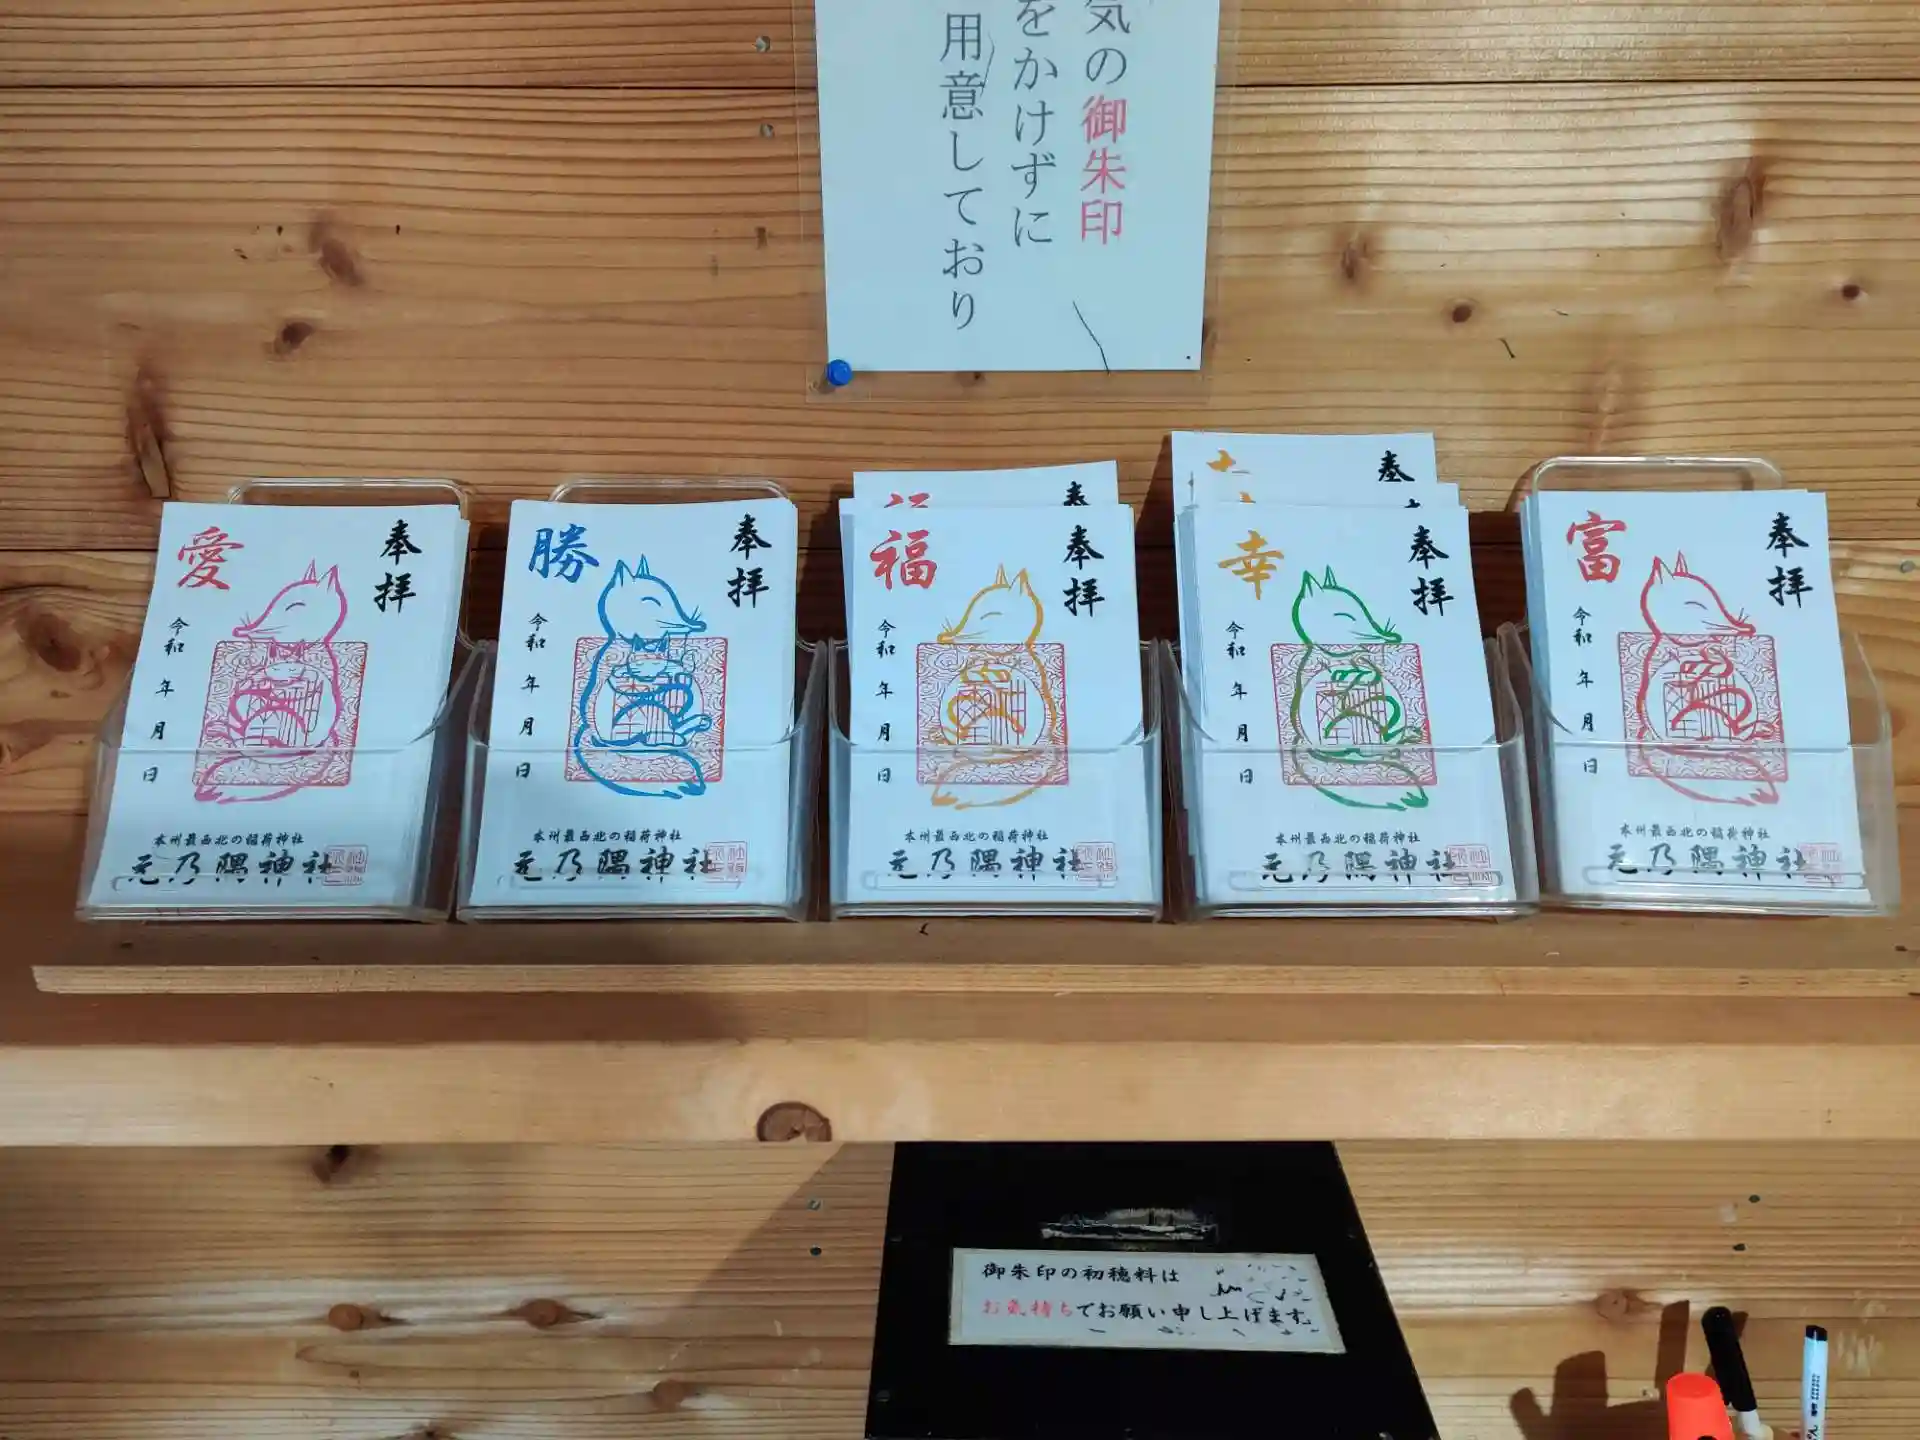 気の御朱印
をかけずに
用意しており
愛
奉拝
令和 年 月 日
本州最西北の稲荷神社
元乃隅神社
勝
奉拝
令和 年 月 日
本州最西北の稲荷神社
元乃隅神社
福
奉拝
令和 年 月 日
本州最西北の稲荷神社
元乃隅神社
幸
奉
奉拝
令和 年 月 日
本州最西北の稲荷神社
元乃隅神社
富
奉拝
令和 年 月 日
本州最西北の稲荷神社
元乃隅神社
御朱印の初穂料は
お気持ちでお願い申し上げます。